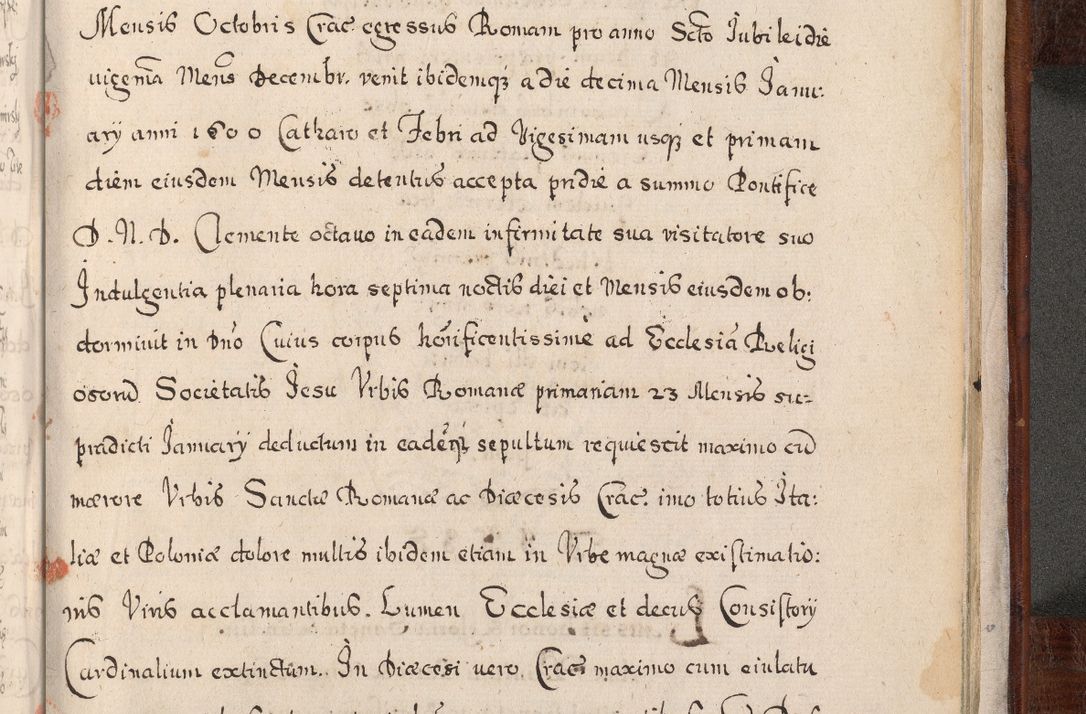 Mensis Octobris Crac. egressus Romam pro anno Scto Jubilei die
uigenīa Mens̄ Decembr. venit ibidemq₃ a die decima Mensis Janu:
ary anni 1600 Catharo et Febri ad Vigesimam usq₃ et primam
diem eiusdem Mensis detentus accepta pridie a summo Pontifice
D. N. D. Clemente octauo in eadem infirmitate sua visitatore suo
Indulgentia plenaria hora septima noctis diei et Mensis eiusdem ob:
dormiuit in Dn̄o Cuius corpus hon̄ificentissime ad Ecclesiā Religi
osorū Societatis Jesu Vrbis Romanæ primariam 23 Mensis su=
pradicti January deductum in eadēq₃ sepultum requiescit maximo cū
mærore Vrbis Sanctæ Romanæ ac Diæcesis Crac. imo totius Ita:
liæ et Poloniæ dolore multis ibidem etiam in Vrbe magnæ existimatio:
nis Viris acclamantibus. Lumen Ecclesiæ et decus Consistory
Cardinalium extinctum. In Diæcesi uero Crac. maximo cum eiulatu